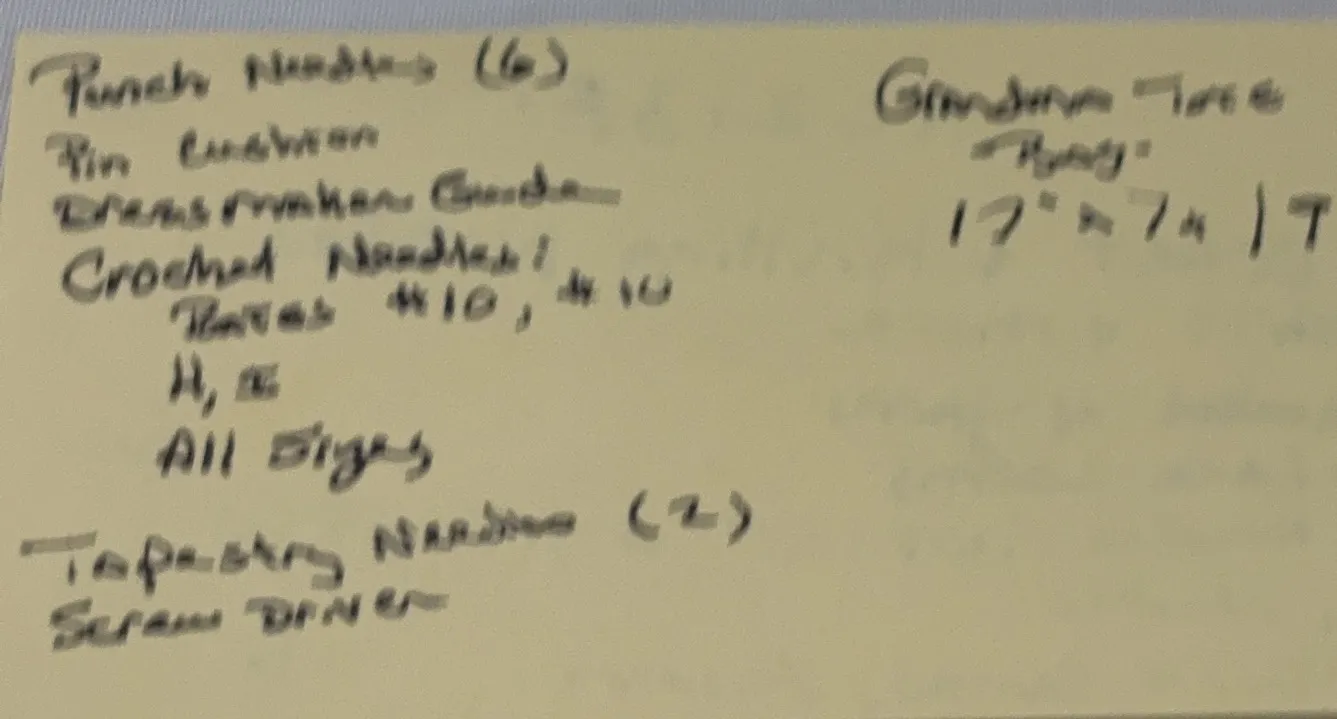 Punch Needles (6)
Pin Cushion
Dressmaker Guide
Crochet Needles:
#10, #10
H, I
All Sizes
Tapestry Needles (2)
Screw Driver
Grandma
17" x 7" x 17